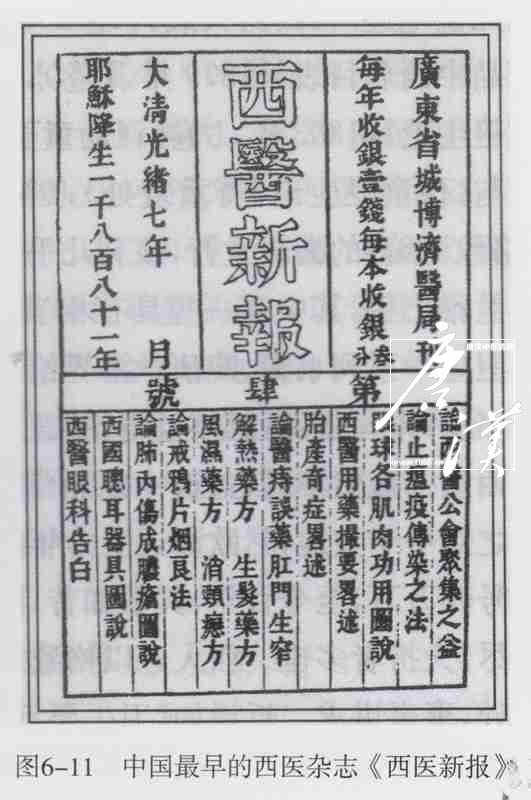 廣東省城博濟醫局刊
每年收銀壹錢每本收銀叁分
西醫新報
大清光緒七年 月
耶穌降生一千八百八十一年
第肆號
論西醫公會聚集之益
論止瘟疫傳染之法
球各肌肉功用圖說
西醫用藥撮要畧述
胎產奇症畧述
論醫痔誤藥肛門生窄
解熱藥方 生髮藥方
風濕藥方 消方
論戒鴉片烟良法
論肺內傷成膿瘡圖說
西國聰耳器具圖說
西醫眼科告白
唐漢
图6-11 中国最早的西医杂志《西医新报》